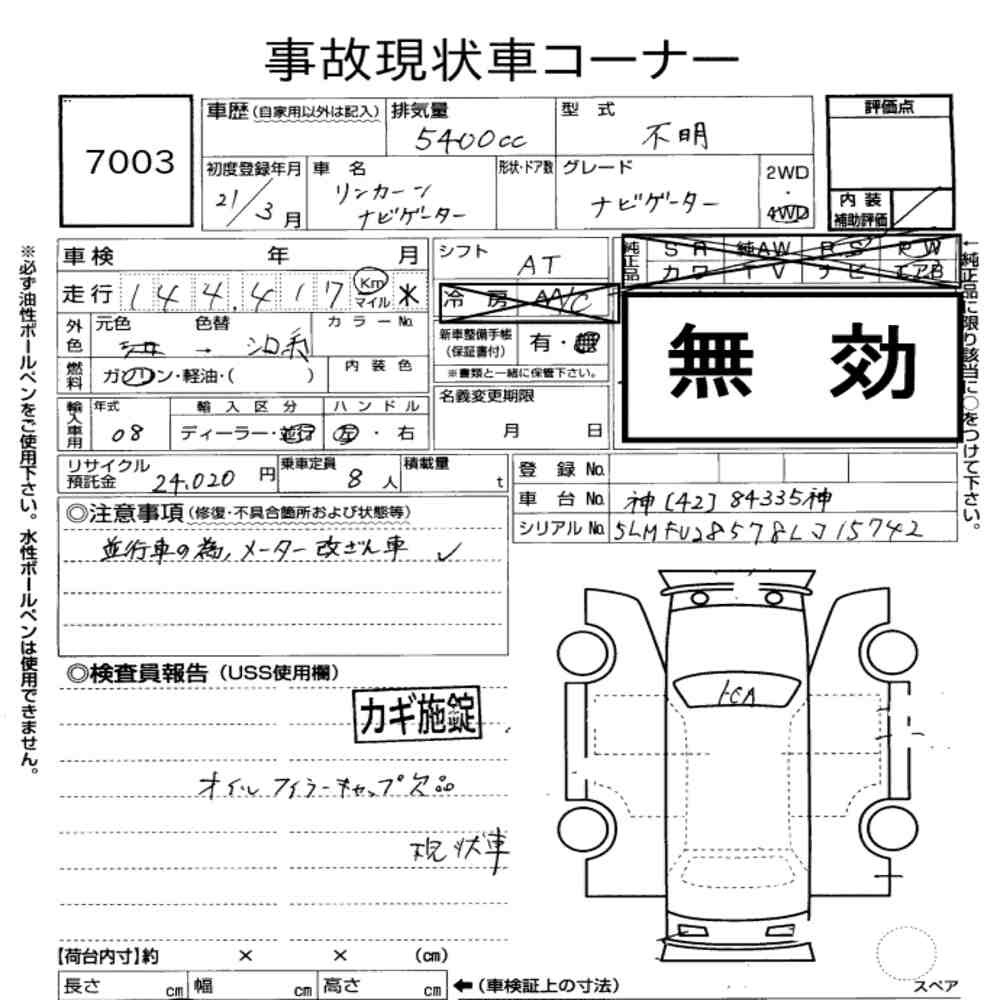 事故現状車コーナー
7003
車歴(自家用以外は記入)
排気量
5400cc
型 式
不明
評価点
初度登録年月
21/3月
車 名
リンカーン
ナビゲーター
形状・ドア数
グレード
ナビゲーター
2WD
・
4WD
内 装
補助評価
※必ず油性ボールペンをご使用下さい。水性ボールペンは使用できません。
車検 年 月
走行 144,417 Km マイル ※
シフト
AT
純正品
SR 純AW P.S P.W
カワ TV ナビ エアB
冷 房 A/C
無 効
←純正品に限り該当に○をつけて下さい。
外色
元色 色替
カラーNo.
新車整備手帳
(保証書付)
有・無
※書類と一緒に保管下さい。
燃料
ガソリン・軽油・( )
内 装 色
名義変更期限
月 日
輸入車用
年式
08
輸 入 区 分
ディーラー・並行
ハ ン ド ル
左 ・ 右
リサイクル
預託金 24,020 円
乗車定員
8 人
積載量
t
登 録 No.
車 台 No. 神[42]84335神
シリアルNo. 5LMFU28578LJ15742
◎注意事項(修復・不具合箇所および状態等)
並行車の為,メーター改ざん車 ✓
◎検査員報告(USS使用欄)
カギ施錠
オイルフィラーキャップ欠品
現状車
【荷台内寸】約 × × (cm)
長さ cm 幅 cm 高さ cm
←(車検証上の寸法)
スペア